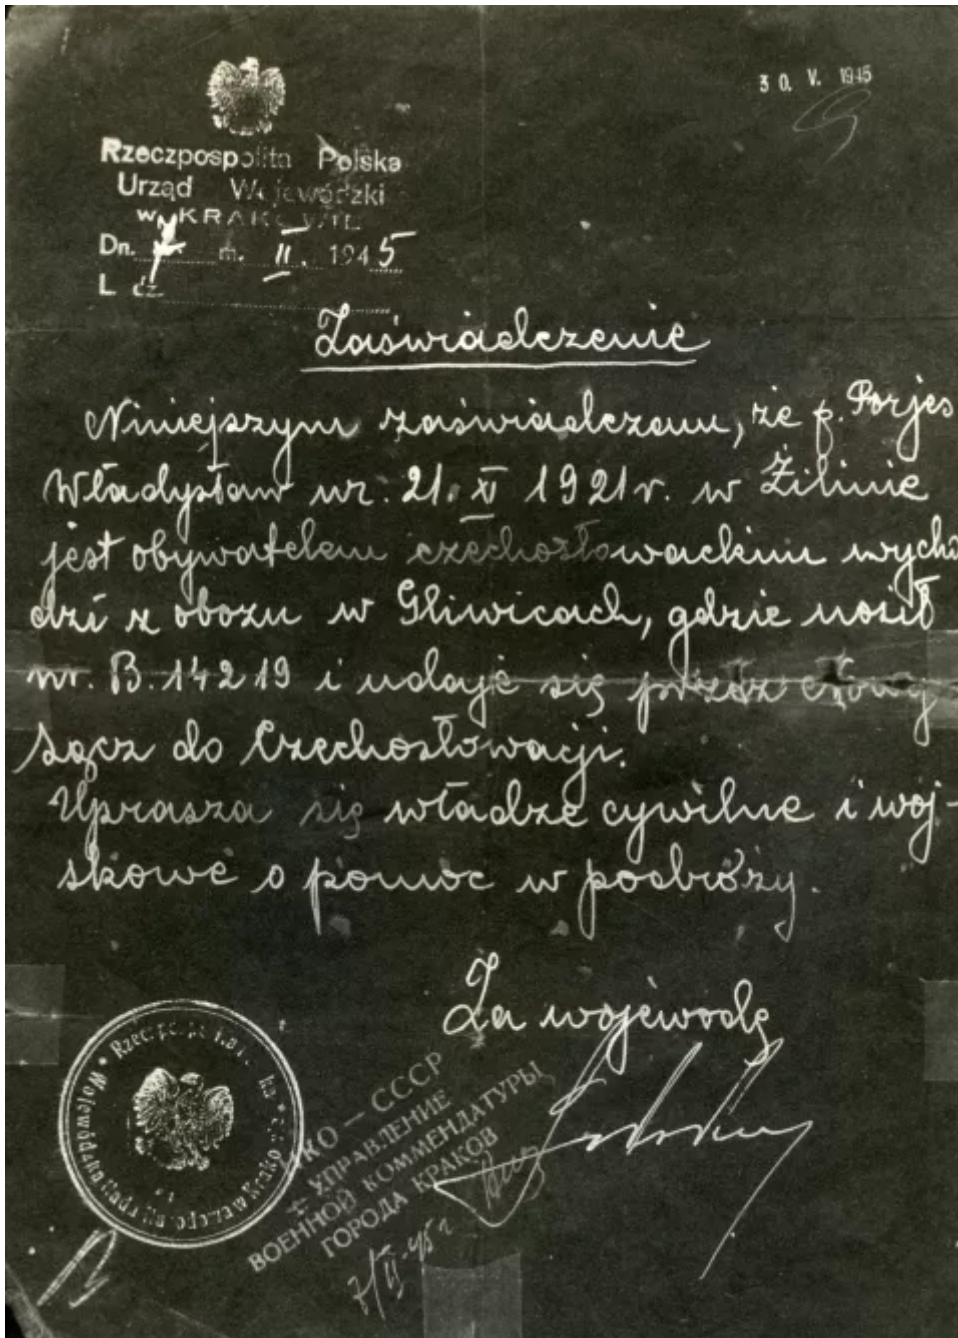 30. V. 1945
Rzeczpospolita Polska
Urząd Wojewódzki
w KRAKOWIE
Dn. m. II. 1945
L. dz.
Zaświadczenie
Niniejszym zaświadczam, że p. Porjes
Władysław ur. 21. XI 1921 r. w Żilinie
jest obywatelem czechosłowackim wycho
dzi z obozu w Gliwicach, gdzie nosił
nr. B. 14219 i udaje się przez Nowy
Sącz do Czechosłowacji.
Uprasza się władze cywilne i woj-
skowe o pomoc w podróży.
Za wojewodę
НКО — СССР
УПРАВЛЕНИЕ
ВОЕННОЙ КОММЕНДАТУРЫ
ГОРОДА КРАКОВ
7/II-45 г